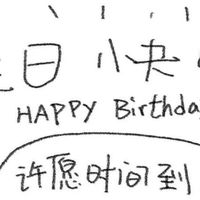 日快
HAPPY Birthda
许愿时间到